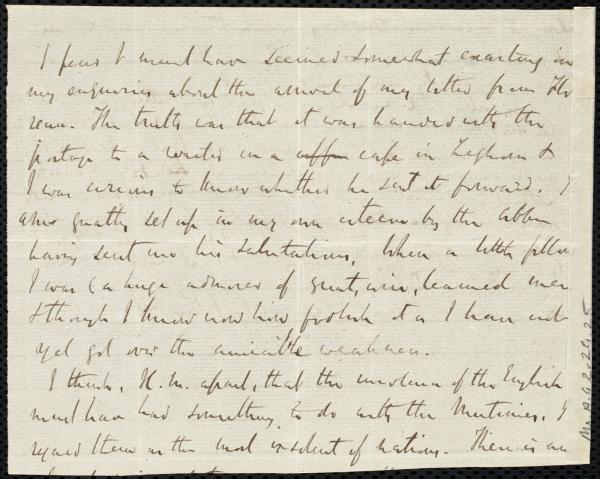 I fear I must have seemed somewhat exacting in
my enquiries about the arrival of my letter from Flo
rence. The truth was that it was handed with the
postage to a waiter in a cafe in Leghorn &
I was curious to know whether he sent it forward. I
am greatly set up in my own esteem by the abbe
having sent me his salutations. When a little fellow
I was (a huge admirer of great, wise, learned men
& though I know now how foolish it is I have not
yet got over the amicable weakness.
I think, H. M. apart, that the insolence of the English
must have had something to do with the Mutinies. I
regard them as the most insolent of nations. There is an
Ms. A.9.2.29.25